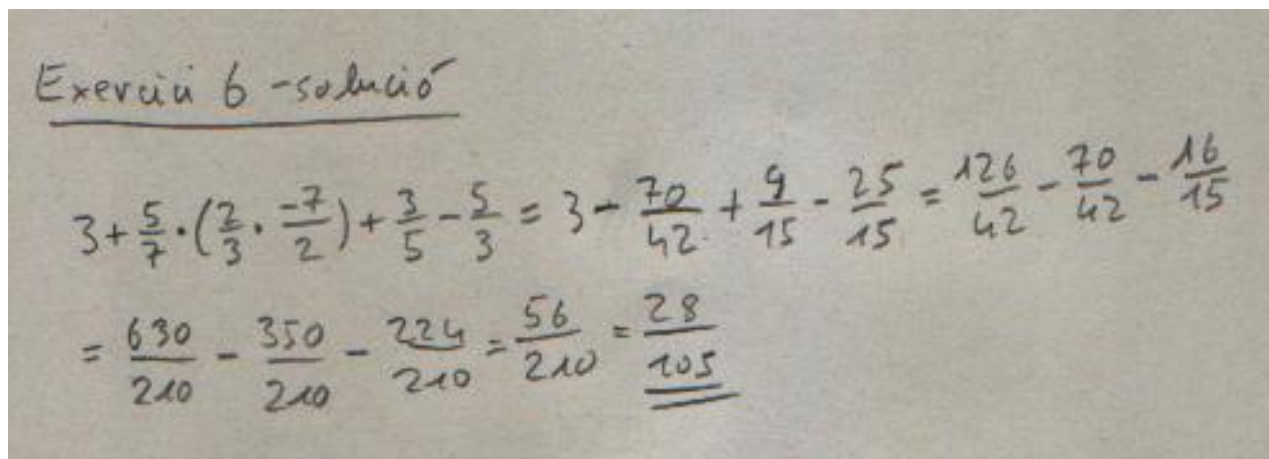 Exercici 6 - solució
3 + 5/7 · (2/3 · -7/2) + 3/5 - 5/3 = 3 - 70/42 + 9/15 - 25/15 = 126/42 - 70/42 - 16/15
= 630/210 - 350/210 - 224/210 = 56/210 = 28/105